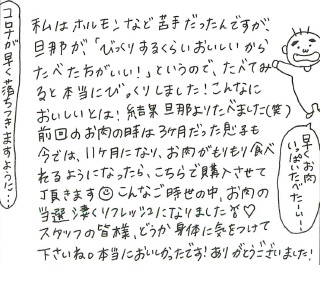 私はホルモンなど苦手だったんですが、
旦那が「びっくりするくらいおいしいから
たべたちがいい！」というので、たべてみ
ると本当にびっくりしました！こんなに
おいしいとは！結果旦那よりたべました（笑）
前回のお肉の時は3ヶ月だった息子も
今では、11ヶ月になり、お肉がもりもり食べ
れるようになったら、こちらで購入させて
頂きます☺こんなご時世の中、お肉の
当選凄くリフレッシュになりました♡
スタッフの皆様、どうか身体に気をつけて
下さいね。本当においしかったです！ありがとうございました！
早くお肉
いっぱいたべたーい！
コロナが早く落ちつきますように…